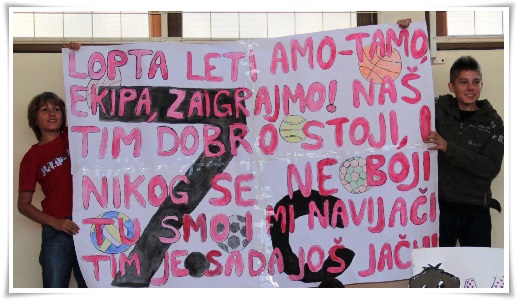 LOPTA LETI AMO-TAMO,
EKIPA, ZAIGRAJMO! NAŠ
TIM DOBRO STOJI, I
NIKOG SE NE BOJI
TU SMO I MI NAVIJAČI
TIM JE SADA JOŠ JAČI!
7.C